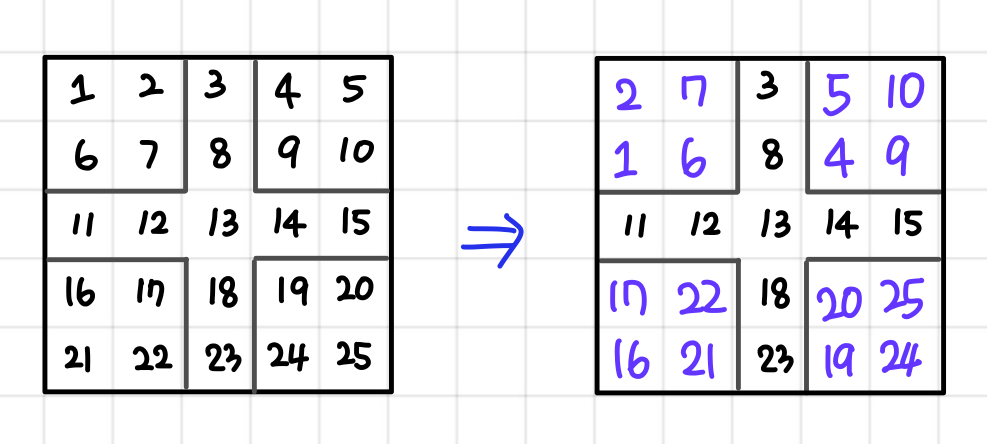 1 2 3 4 5
6 7 8 9 10
11 12 13 14 15
16 17 18 19 20
21 22 23 24 25
2 7 3 5 10
1 6 8 4 9
11 12 13 14 15
17 22 18 20 25
16 21 23 19 24